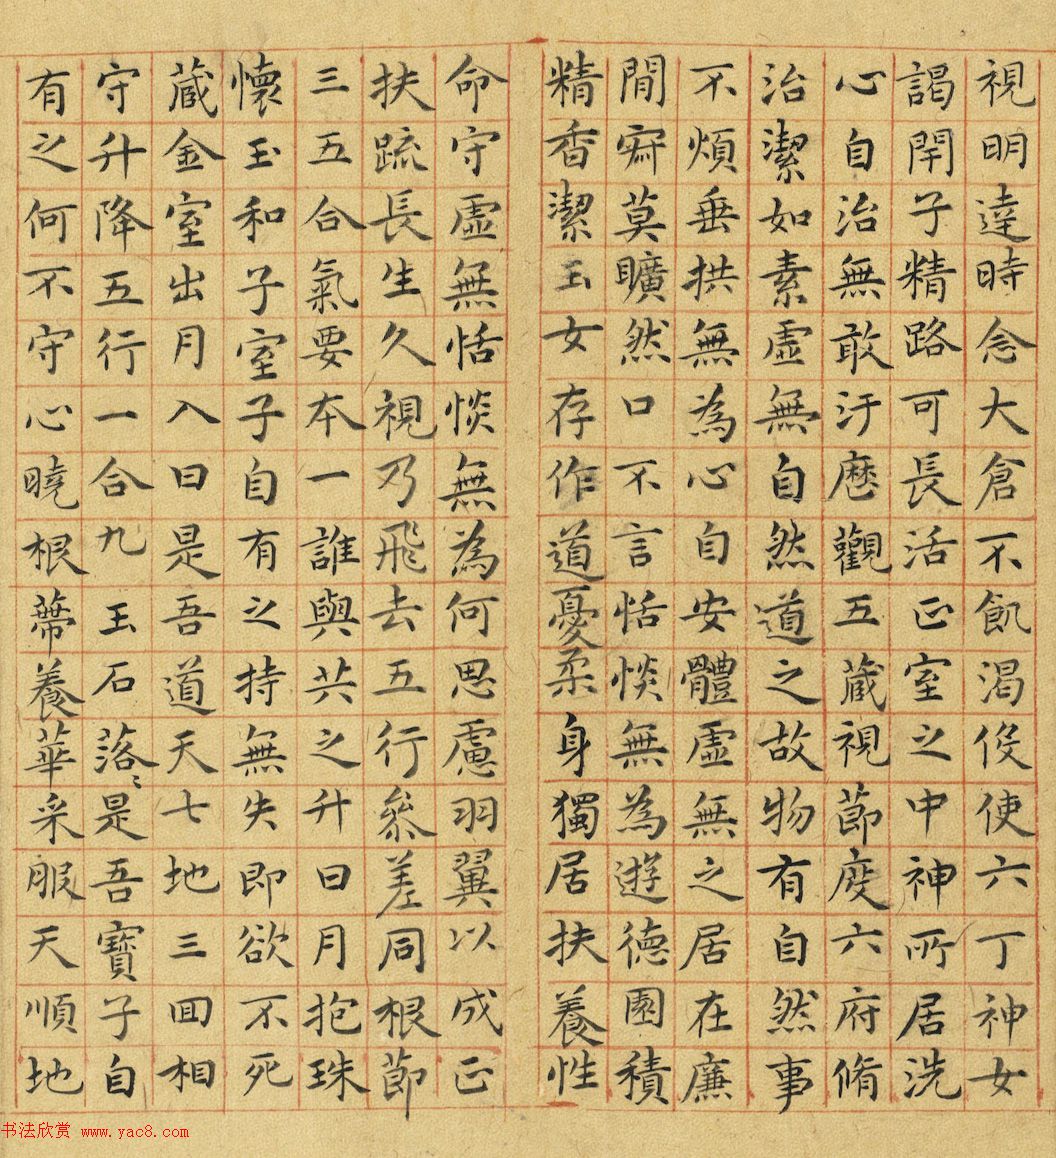 視明達時念大倉不飢渴俟使六丁神女
謁閇子精路可長活正室之中神所居洗
心自治無敢汙歷觀五藏視節度六府脩
治潔如素虛無自然道之故物有自然事
不煩垂拱無為心自安體虛無之居在廉
間寂莫曠然口不言恬惔無為遊德園積
精香潔玉女存作道憂柔身獨居扶養性
命守虛無恬惔無為何思慮羽翼以成正
扶疏長生久視乃飛去五行參差同根節
三五合氣要本一誰與共之升日月抱珠
懷玉和子室子自有之持無失即欲不死
藏金室出月入日是吾道天七地三回相
守升降五行一合九玉石落〻是吾寶子自
有之何不守心曉根蒂養華采服天順地
书法欣赏 www.yac8.com